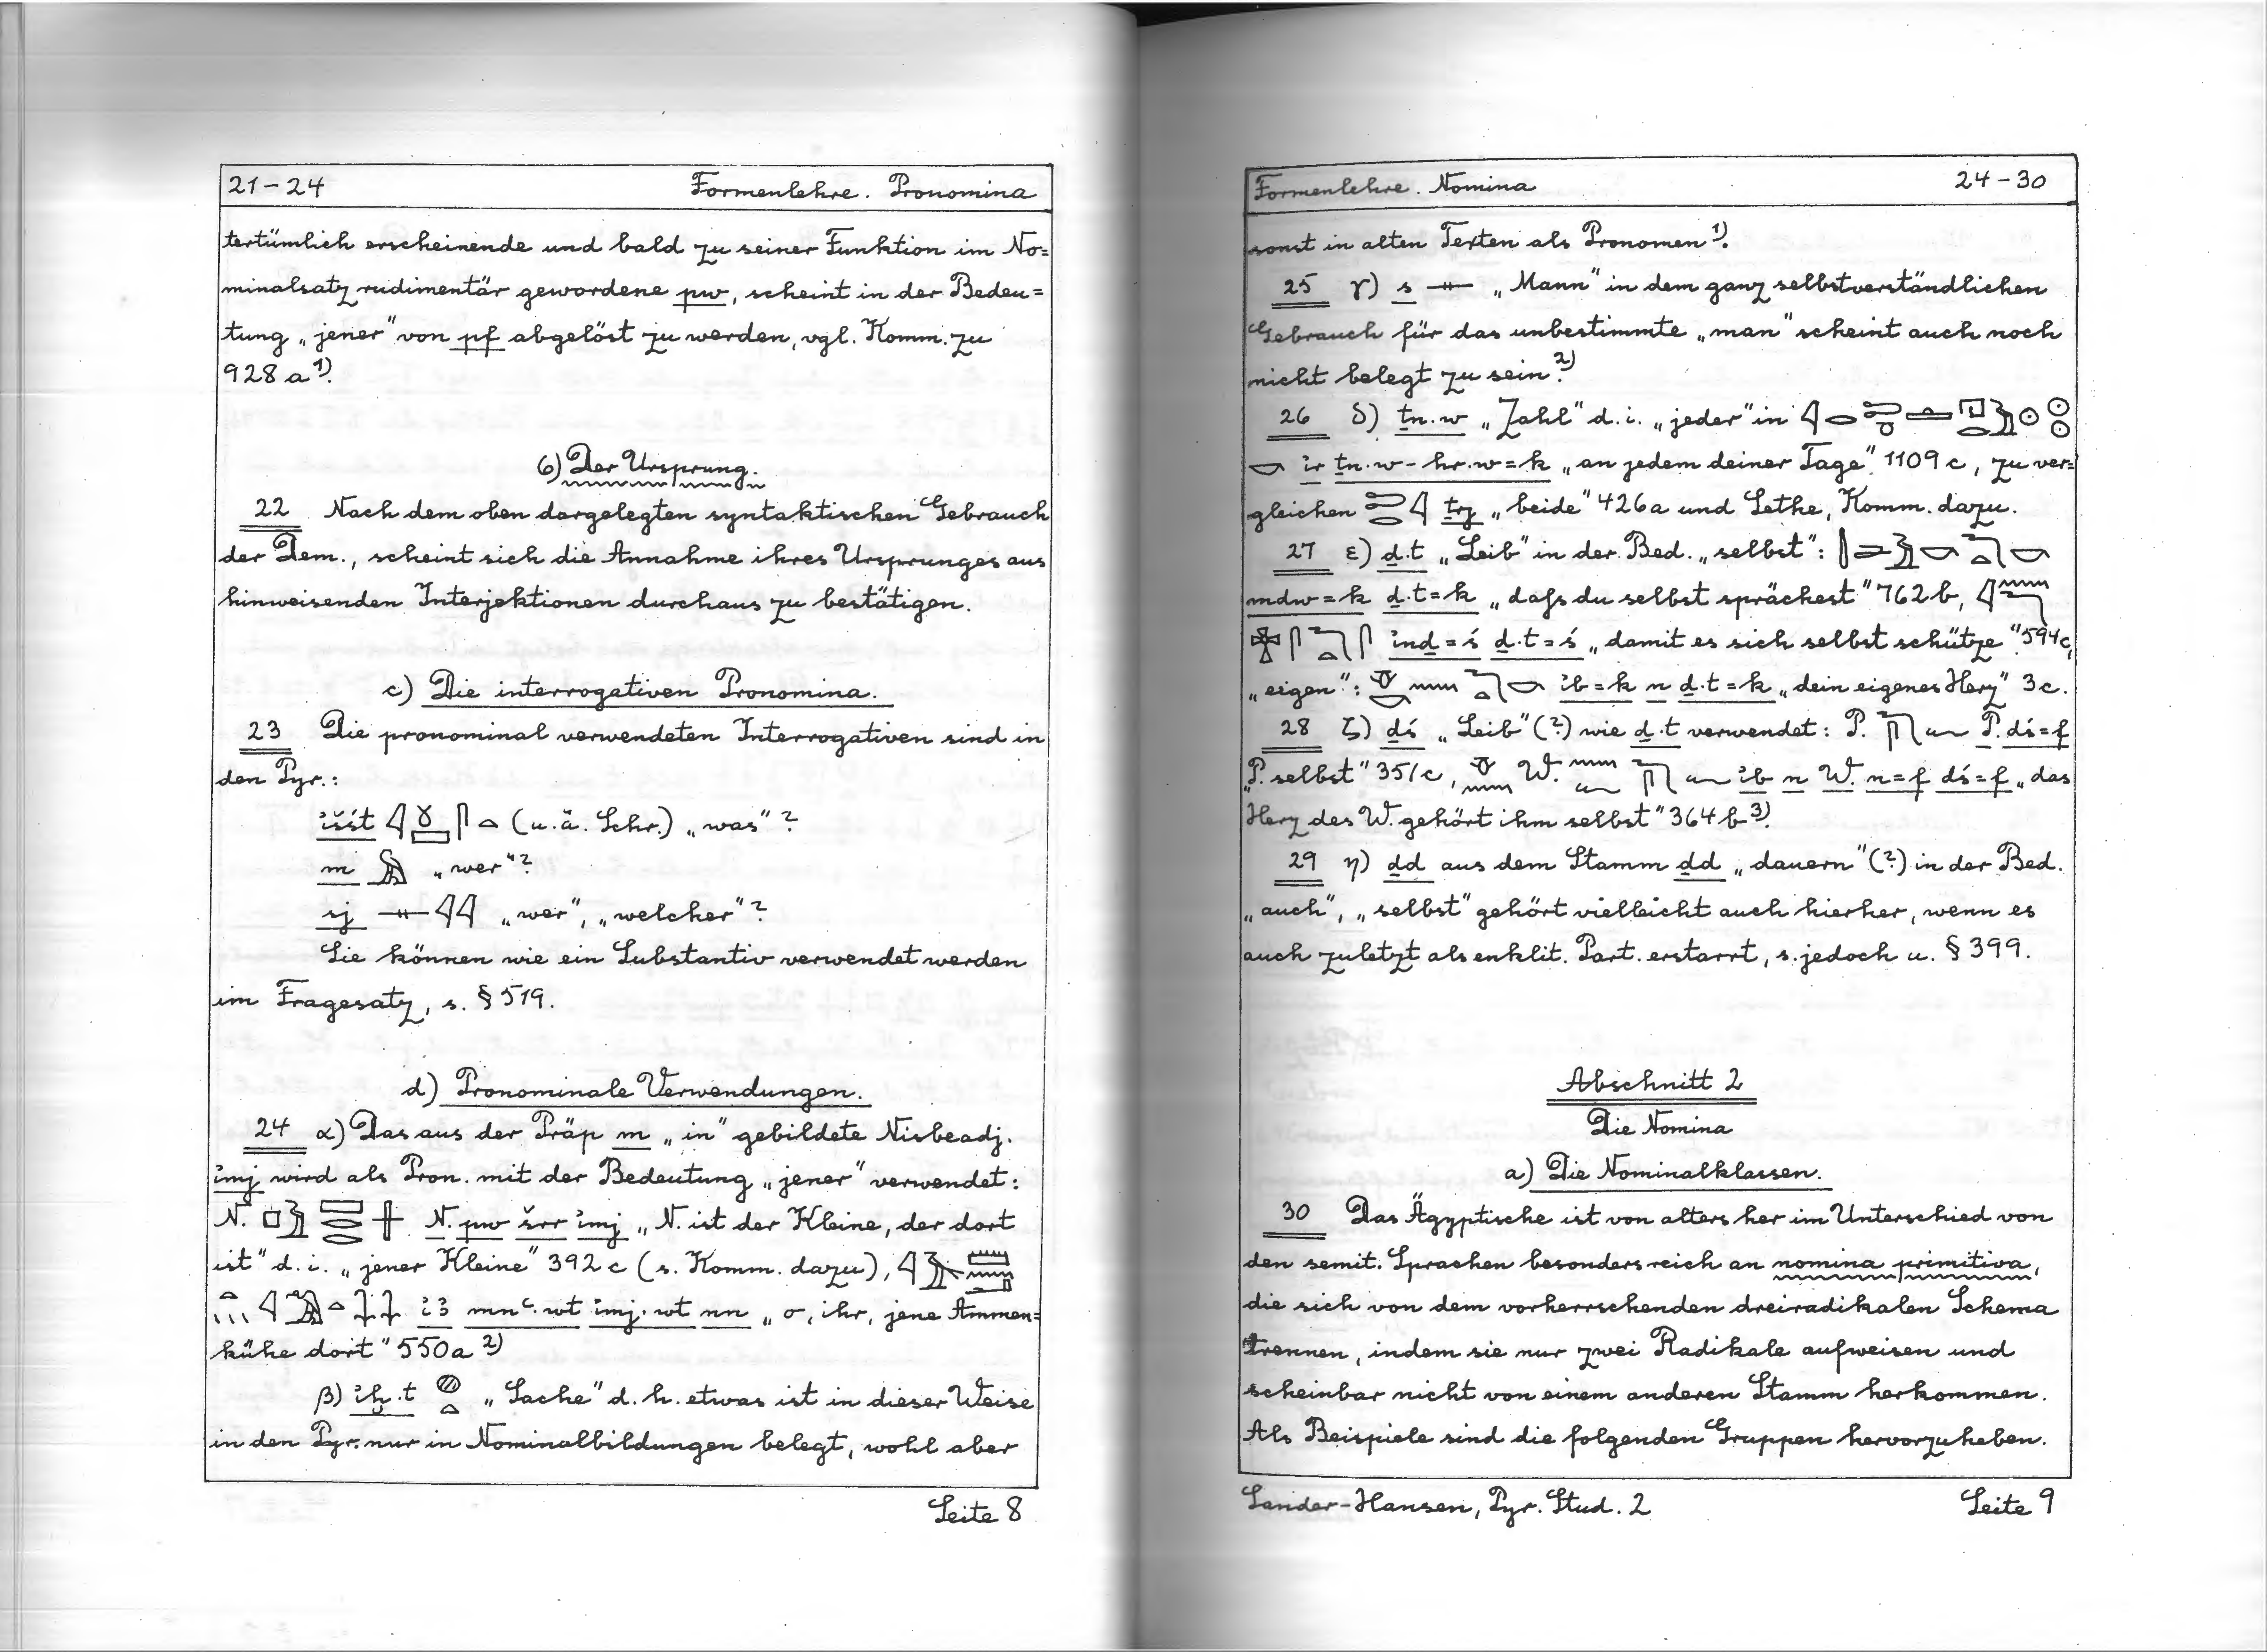 21-24 Formenlehre. Pronomina
tertümlich erscheinende und bald zu seiner Funktion im No=
minalsatz rudimentär gewordene pw, scheint in der Bedeu=
tung „jener" von pf abgelöst zu werden, vgl. Komm. zu
928 a 1).
6) Der Ursprung.
22 Nach dem oben dargelegten syntaktischen Gebrauch
der Dem., scheint sich die Annahme ihres Ursprunges aus
hinweisenden Interjektionen durchaus zu bestätigen.
c) Die interrogativen Pronomina.
23 Die pronominal verwendeten Interrogativen sind in
den Pyr.:
išśt (u. ä. Schr.) „was"?
m „wer"?
sj „wer", „welcher"?
Sie können wie ein Substantiv verwendet werden
im Fragesatz, s. § 519.
d) Pronominale Verwendungen.
24 α) Das aus der Präp m „in" gebildete Nisbeadj.
imj wird als Pron. mit der Bedeutung „jener" verwendet:
N. N. pw šrr imj „N. ist der Kleine, der dort
ist" d. i. „jener Kleine" 392 c (s. Komm. dazu),
i3 mnꜥ.wt imj.wt nn „o, ihr, jene Ammen=
kühe dort" 550a 2)
β) iḫ.t „Sache" d. h. etwas ist in dieser Weise
in den Pyr. nur in Nominalbildungen belegt, wohl aber
Seite 8
Formenlehre. Nomina 24-30
sonst in alten Texten als Pronomen 1).
25 γ) s „Mann" in dem ganz selbstverständlichen
Gebrauch für das unbestimmte „man" scheint auch noch
nicht belegt zu sein. 2)
26 δ) ṯn.w „Zahl" d. i. „jeder" in
ir ṯn.w-hr.w=k „an jedem deiner Tage" 1109 c, zu ver=
gleichen ṯrj „beide" 426a und Sethe, Komm. dazu.
27 ε) ḏ.t „Leib" in der Bed. „selbst":
mdw=k ḏ.t=k „daß du selbst sprächest" 762 b,
inḏ=ś ḏ.t=ś „damit es sich selbst schütze" 594c,
„eigen": ib=k n ḏ.t=k „dein eigenes Herz" 3c.
28 ζ) ḏś „Leib" (?) wie ḏ.t verwendet: P. P. ḏś=f
„P. selbst" 351c, W. ib n W. n=f ḏś=f „das
Herz des W. gehört ihm selbst" 364 b 3).
29 η) ḏd aus dem Stamm ḏd „dauern" (?) in der Bed.
„auch", „selbst" gehört vielleicht auch hierher, wenn es
auch zuletzt als enklit. Part. erstarrt, s. jedoch u. § 399.
Abschnitt 2
Die Nomina
a) Die Nominalklassen.
30 Das Ägyptische ist von alters her im Unterschied von
den semit. Sprachen besonders reich an nomina primitiva,
die sich von dem vorherrschenden dreiradikalen Schema
trennen, indem sie nur zwei Radikale aufweisen und
scheinbar nicht von einem anderen Stamm herkommen.
Als Beispiele sind die folgenden Gruppen hervorzuheben.
Sander-Hansen, Pyr. Stud. 2 Seite 9